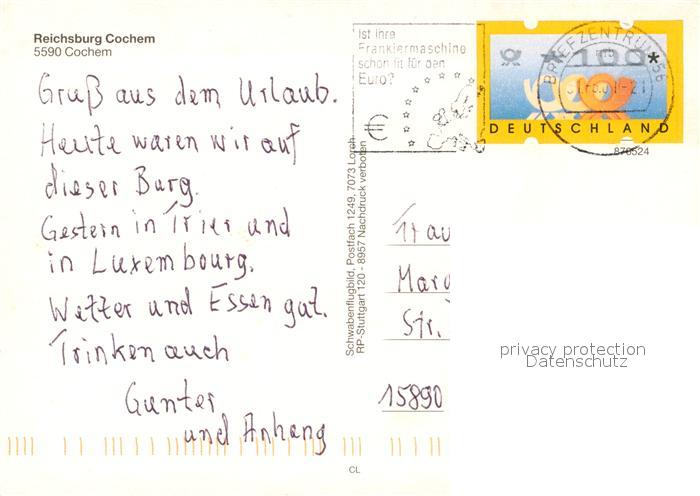 Reichsburg Cochem
5590 Cochem
Gruß aus dem Urlaub.
Heute waren wir auf
dieser Burg.
Gestern in Trier und
in Luxembourg.
Wetter und Essen gut.
Trinken auch
Gunter
und Anhang
CL
Schwabenflugbild, Postfach 1249, 7073 Lorch
RP-Stuttgart 120 - 8957 Nachdruck verboten
Ist Ihre
Frankiermaschine
schon fit für den
Euro?
€
*100*
DEUTSCHLAND
BRIEFZENTRUM 56
870524
Frau
Marg
Str.
15890
privacy protection
Datenschutz